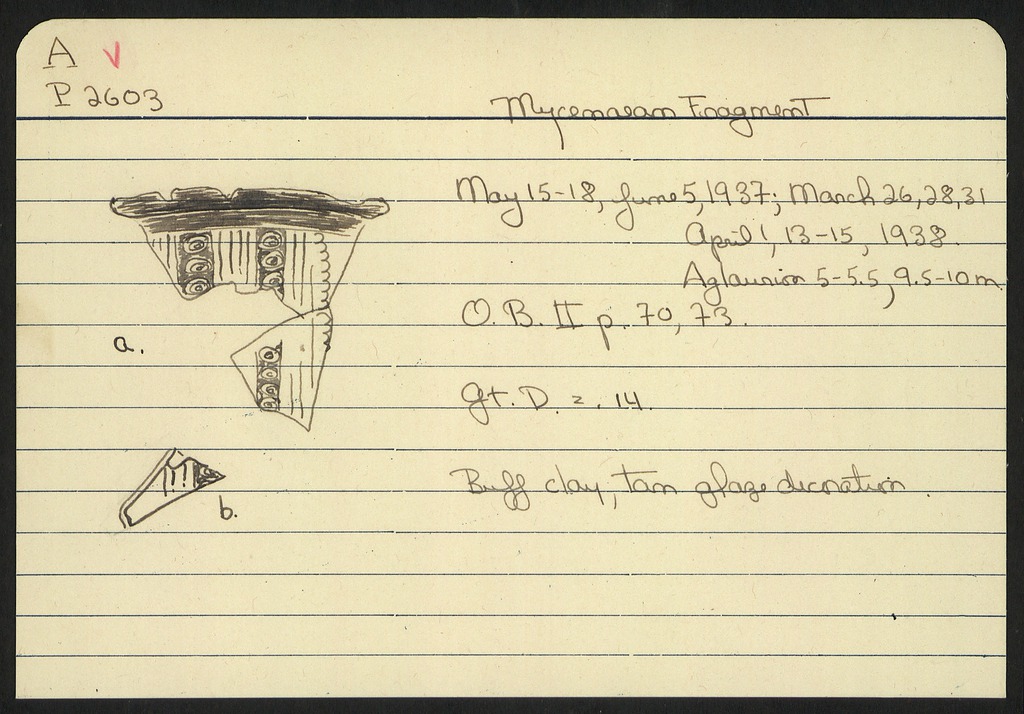 A V
P 2603
Mycenaean Fragment
May 15-18, June 5, 1937; March 26, 28, 31
April 1, 13-15, 1938.
Aglaurion 5-5.5, 9.5-10 m
O.B. II p. 70, 73.
a.
gt. D. = .14.
Buff clay, tan glaze decoration.
b.